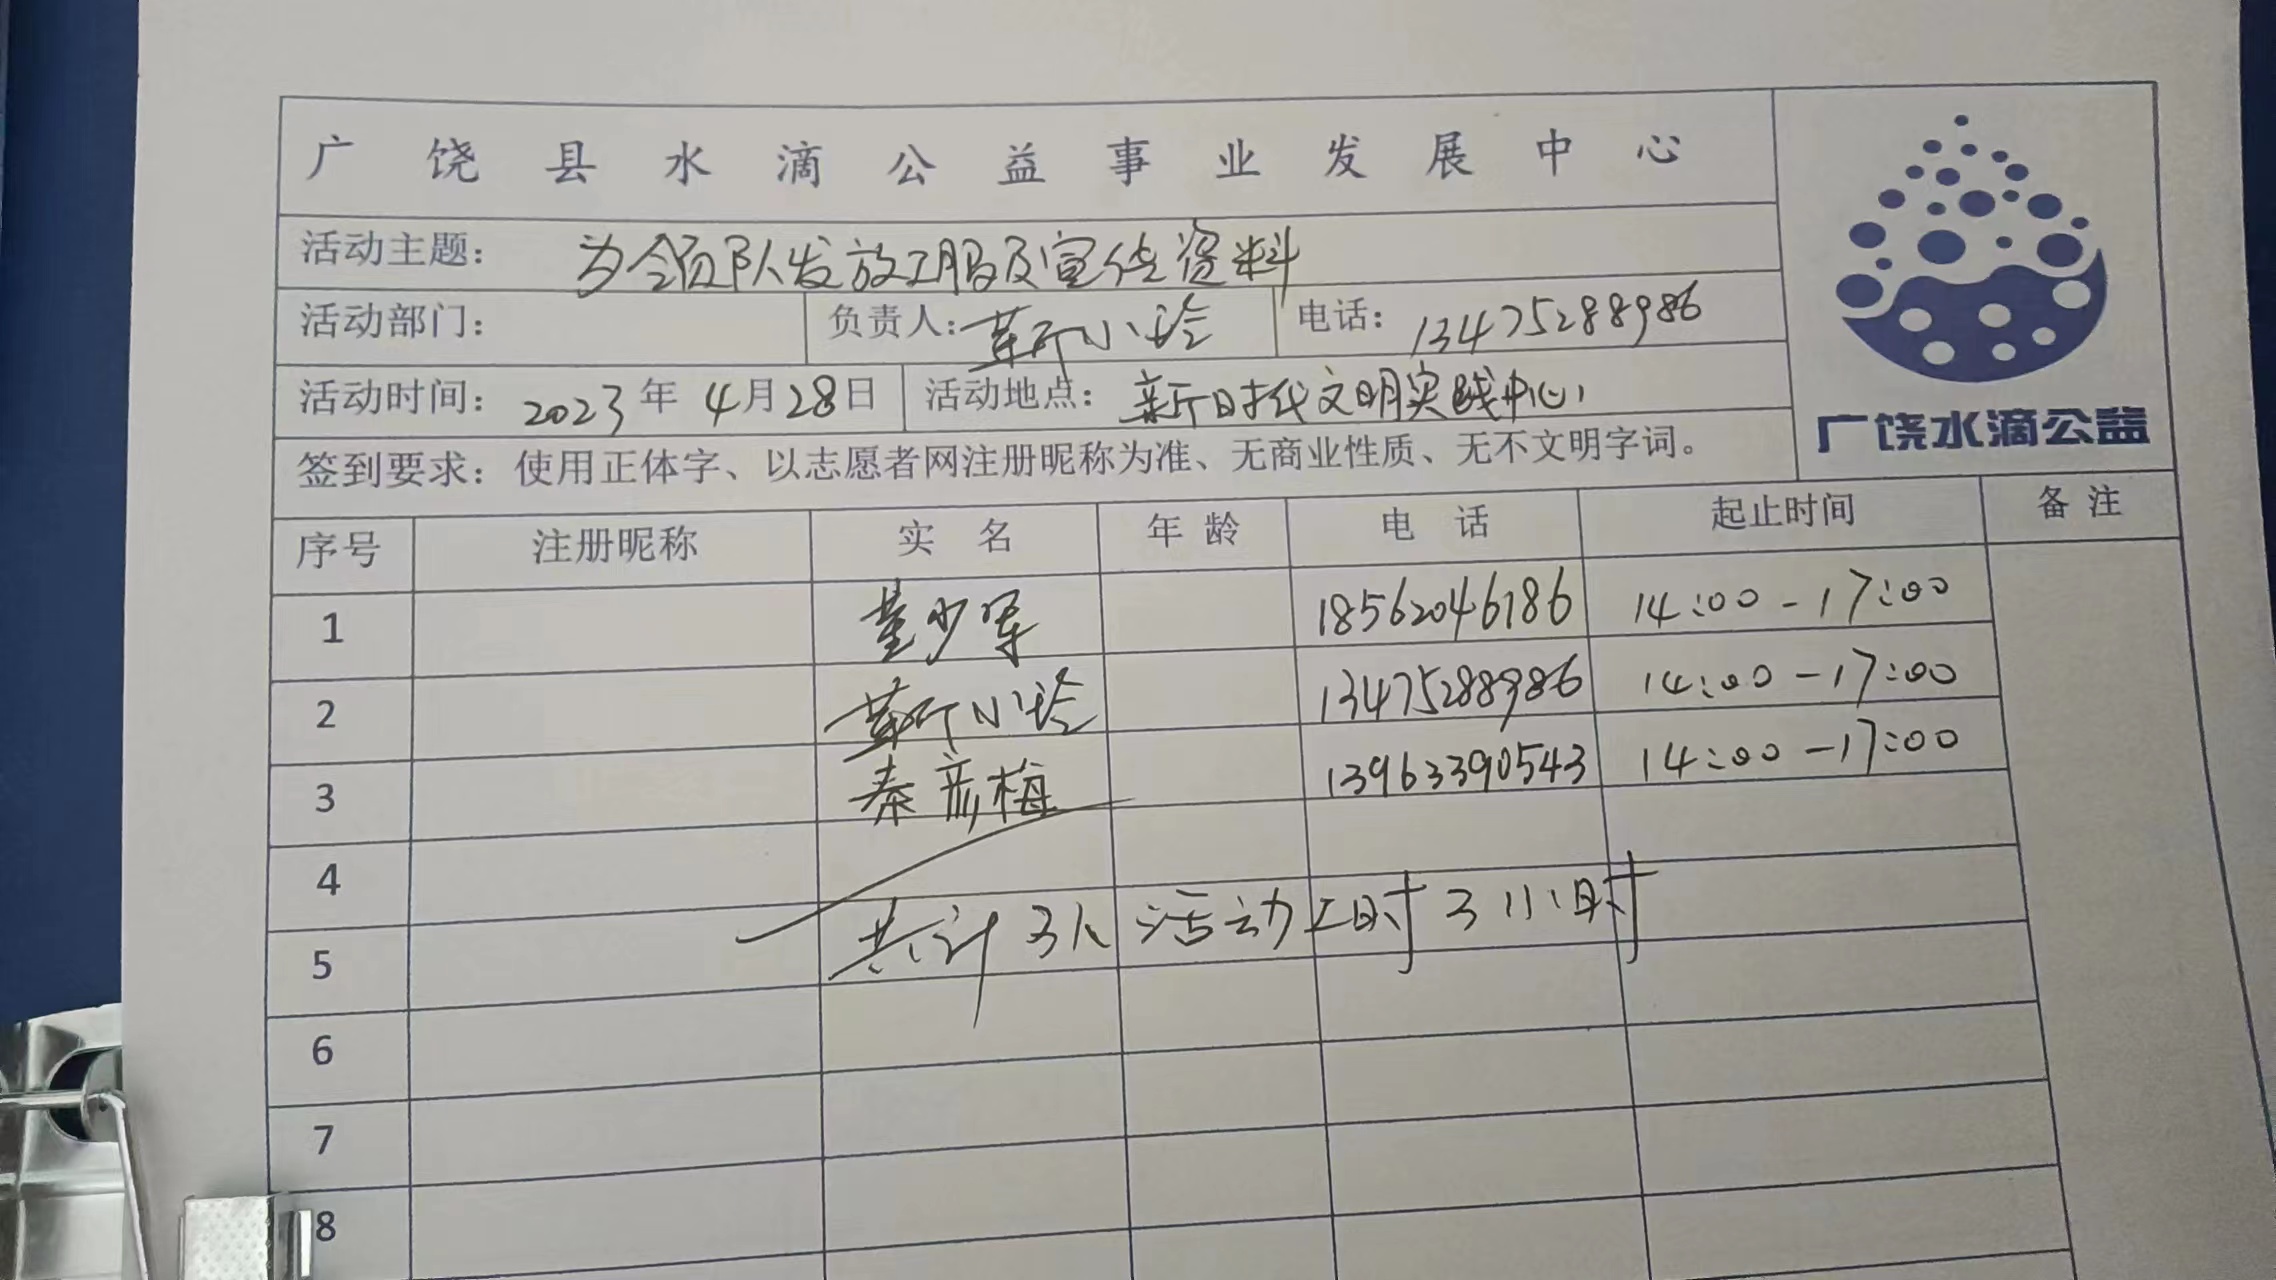 广饶县水滴公益事业发展中心
活动主题： 为领队发放工服及宣传资料
活动部门： 负责人：靳小玲 电话：13475288986
活动时间：2023年4月28日 活动地点：新时代文明实践中心
广饶水滴公益
签到要求：使用正体字、以志愿者网注册昵称为准、无商业性质、无不文明字词。
序号 注册昵称 实名 年龄 电话 起止时间 备注
1 董少军 18562046186 14:00-17:00
2 靳小玲 13475288986 14:00-17:00
3 秦彦梅 13963390543 14:00-17:00
4
共计3人 活动工时3小时
5
6
7
8